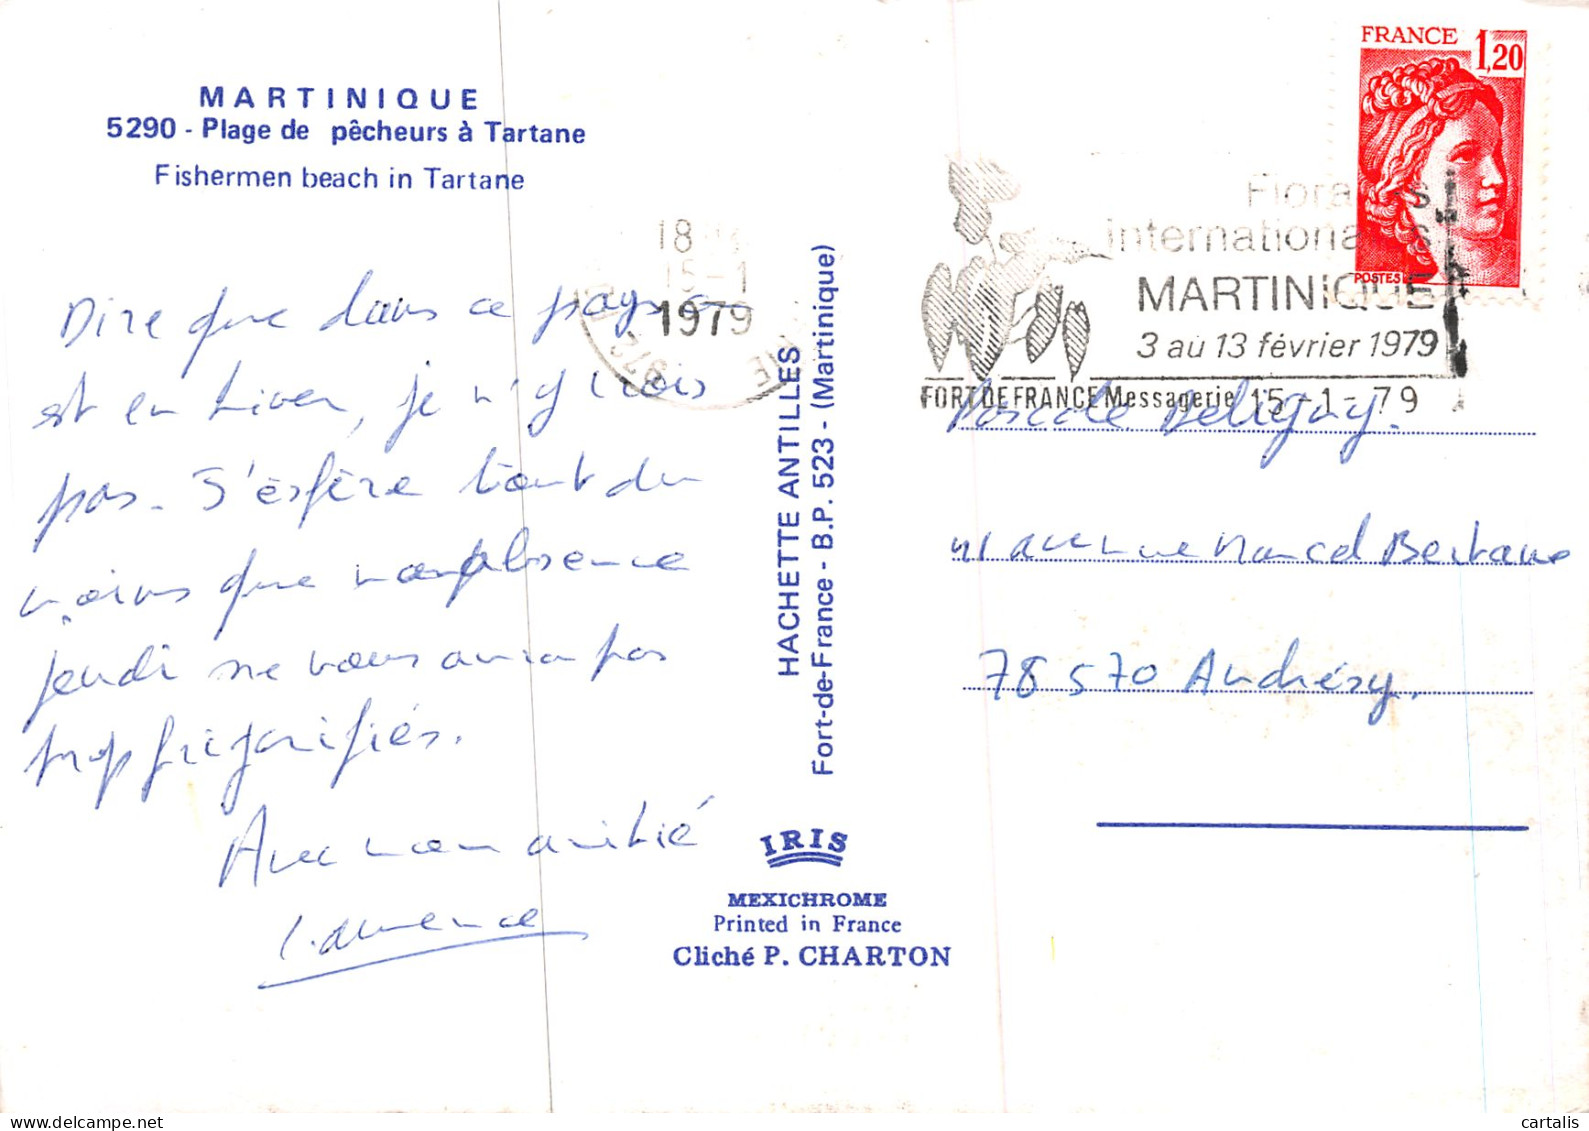 MARTINIQUE
5290 - Plage de pêcheurs à Tartane
Fishermen beach in Tartane
Dire que dans ce pays on
est en hiver, je n'y crois
pas. J'espère tout du
moins que mon absence
jeudi ne vous aura pas
trop frigorifiés.
Avec mon amitié
Laurence
18
15-1
1979
HACHETTE ANTILLES
Fort-de-France - B.P. 523 - (Martinique)
IRIS
MEXICHROME
Printed in France
Cliché P. CHARTON
FRANCE 1,20
POSTES
Floralies
internationales
MARTINIQUE
3 au 13 février 1979
FORT DE FRANCE Messagerie 15-1-79
Pascale Deligny.
41 avenue Marcel Bertaux
78570 Andrésy.
cartalis